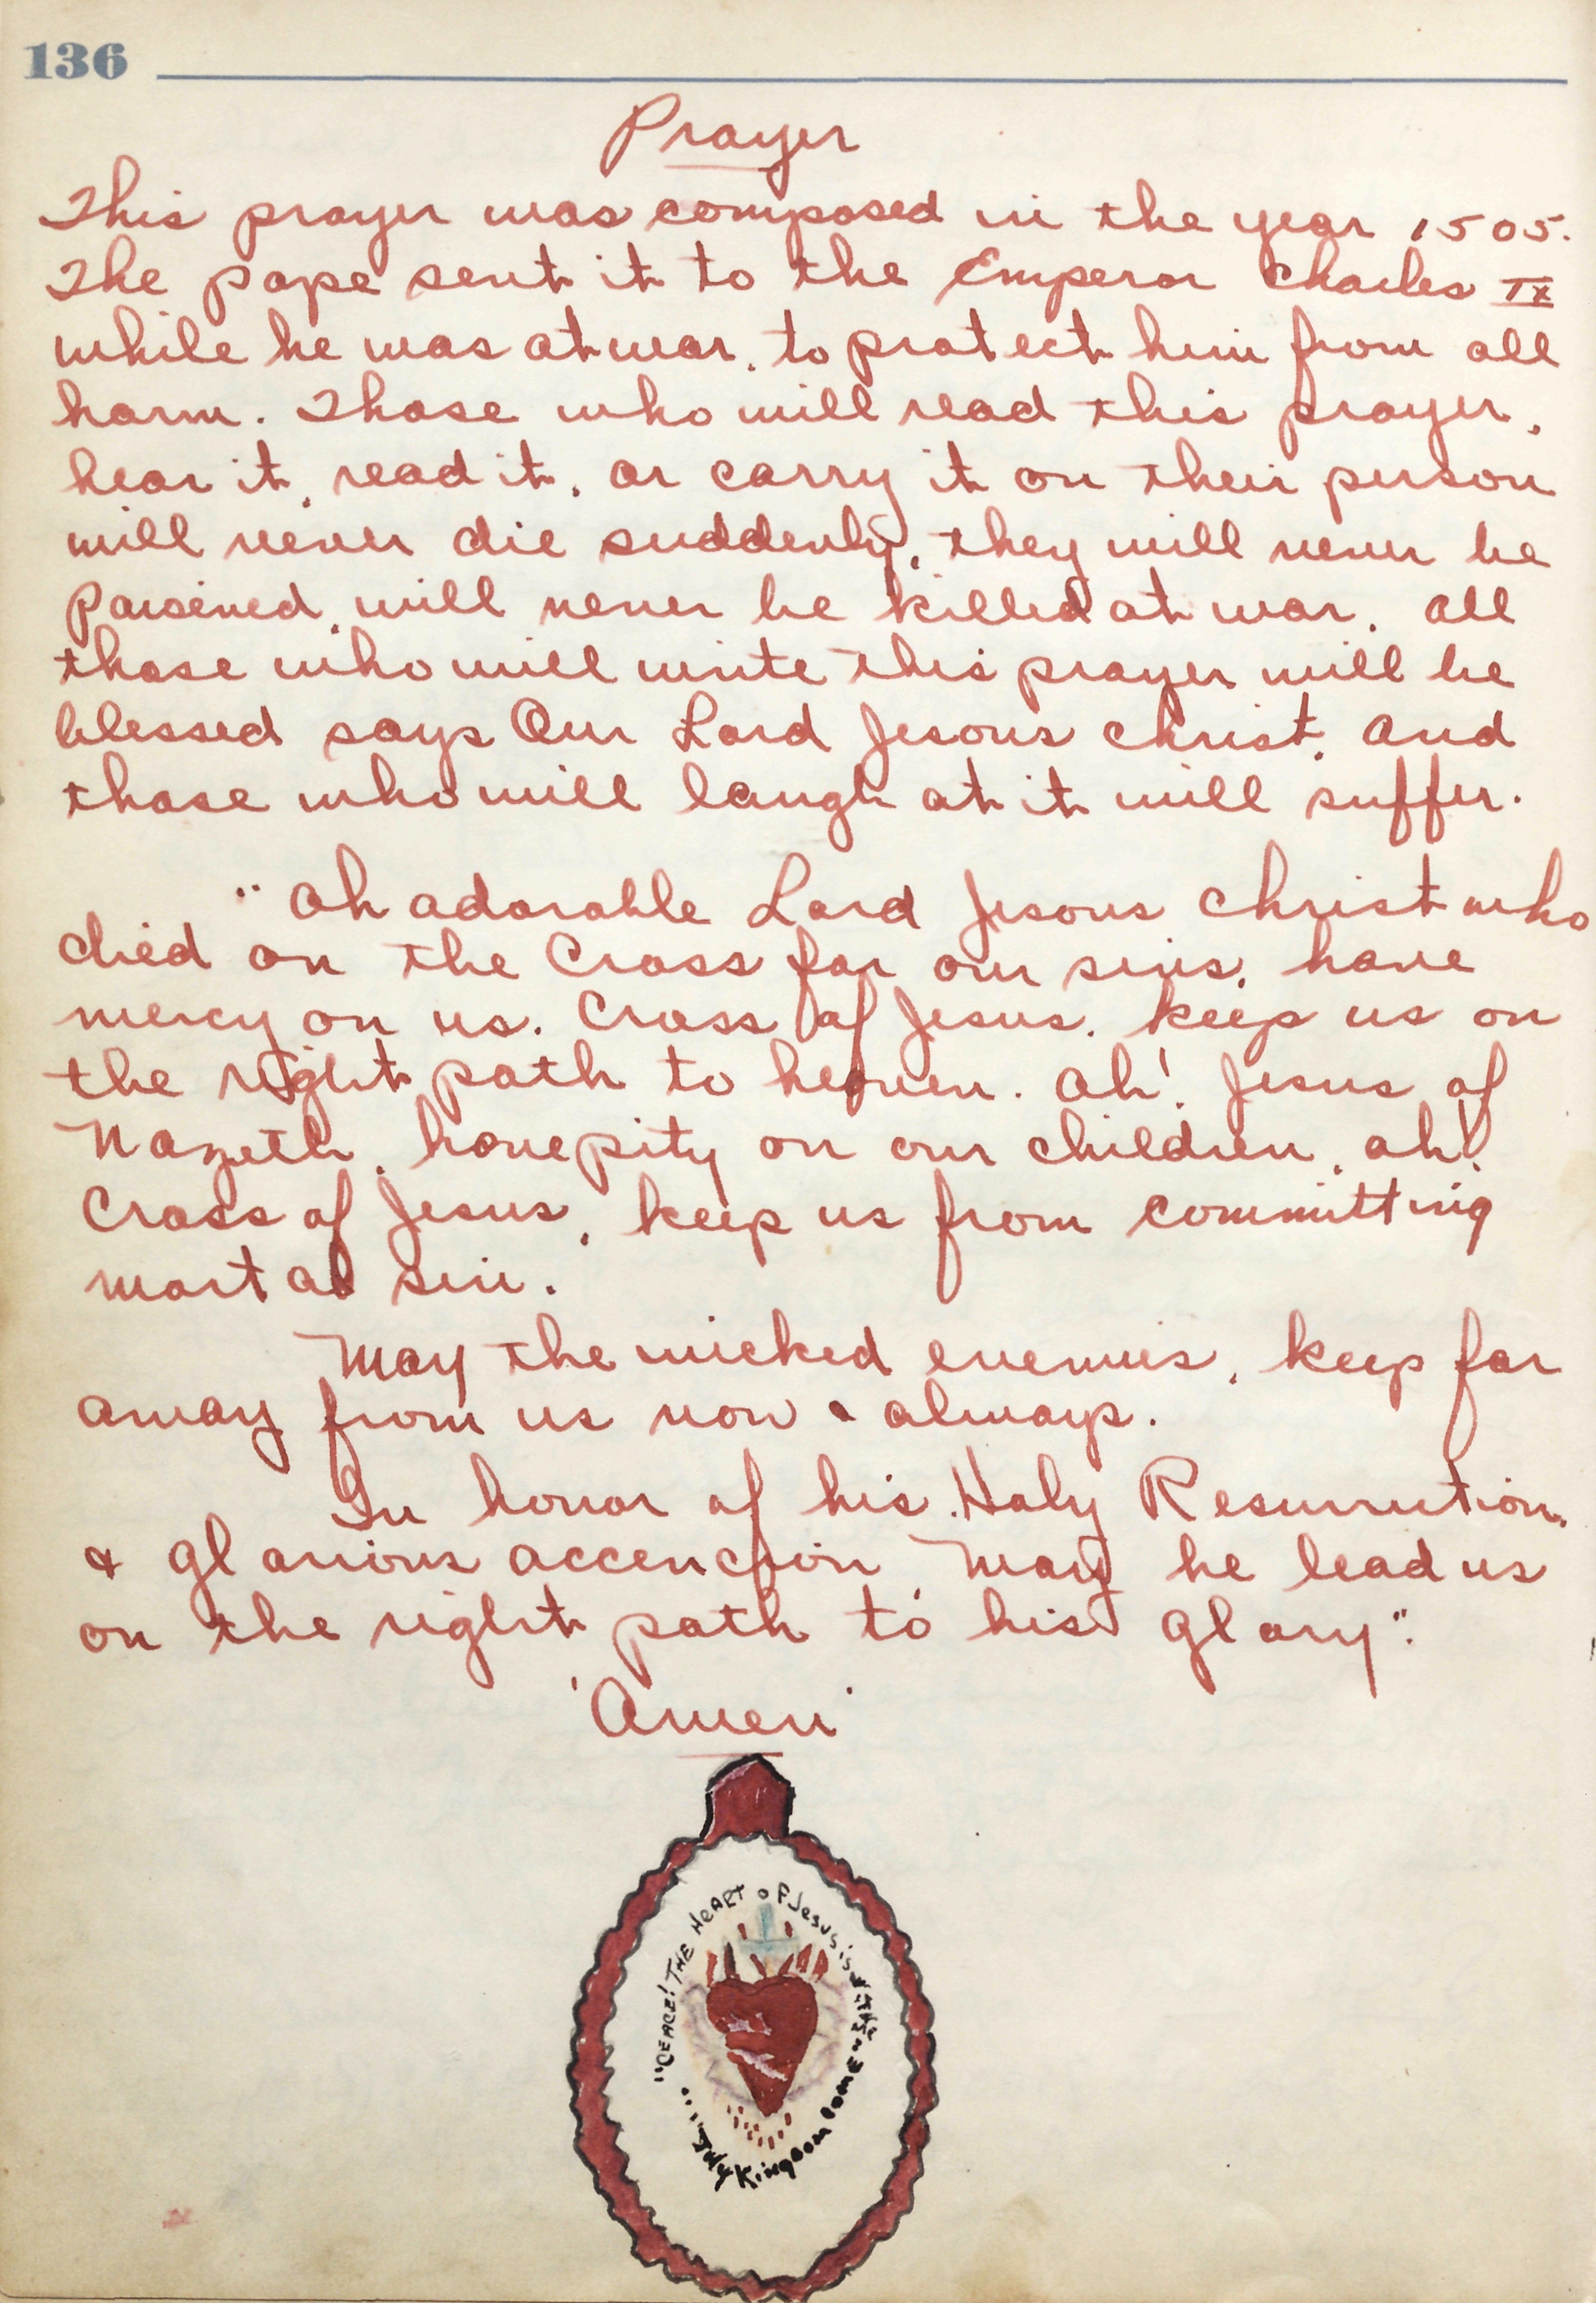 136
Prayer
This prayer was composed in the year 1505.
The pope sent it to the Emperor Charles IX
while he was at war, to protect him from all
harm. Those who will read this prayer,
hear it, read it, or carry it on their person
will never die suddenly, they will never be
Poisened, will never be killed at war. All
those who will write this prayer will be
blessed says Our Lord Jesous Christ, and
those who will laugh at it will suffer.
"Oh adorable Lord Jesous Christ who
died on the Cross for our sins, have
mercy on us. Cross of Jesus, keep us on
the right path to heaven. Oh! Jesus of
Nazeth, have pity on our children, oh!
Cross of Jesus, keep us from committing
mortal sin.
May the wicked enemies, keep far
away from us now & always.
In honor of his Holy Resurrution,
& glorious accencion, May he lead us
on the right path to his glory".
'Amen'
"CEACE! THE HEART OF Jesus is
Thy Kingdom Come"